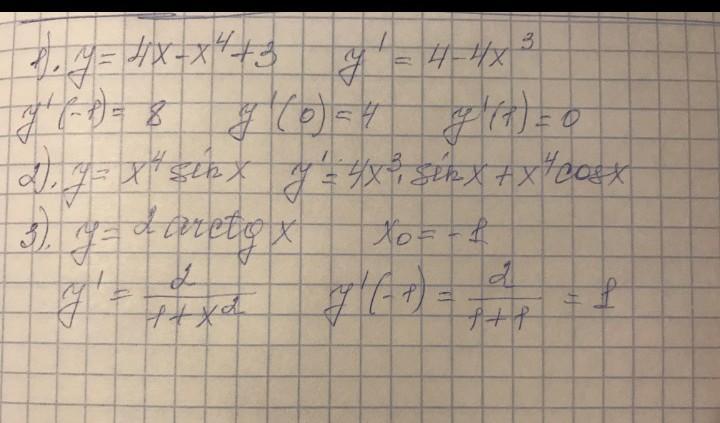 1). y = 4x - x⁴ + 3 y' = 4 - 4x³
y'(-1) = 8 y'(0) = 4 y'(1) = 0
2). y = x⁴ sin x y' = 4x³ · sin x + x⁴ cos x
3). y = 2 arctg x x₀ = -1
y' = 2/(1+x²) y'(-1) = 2/(1+1) = 1